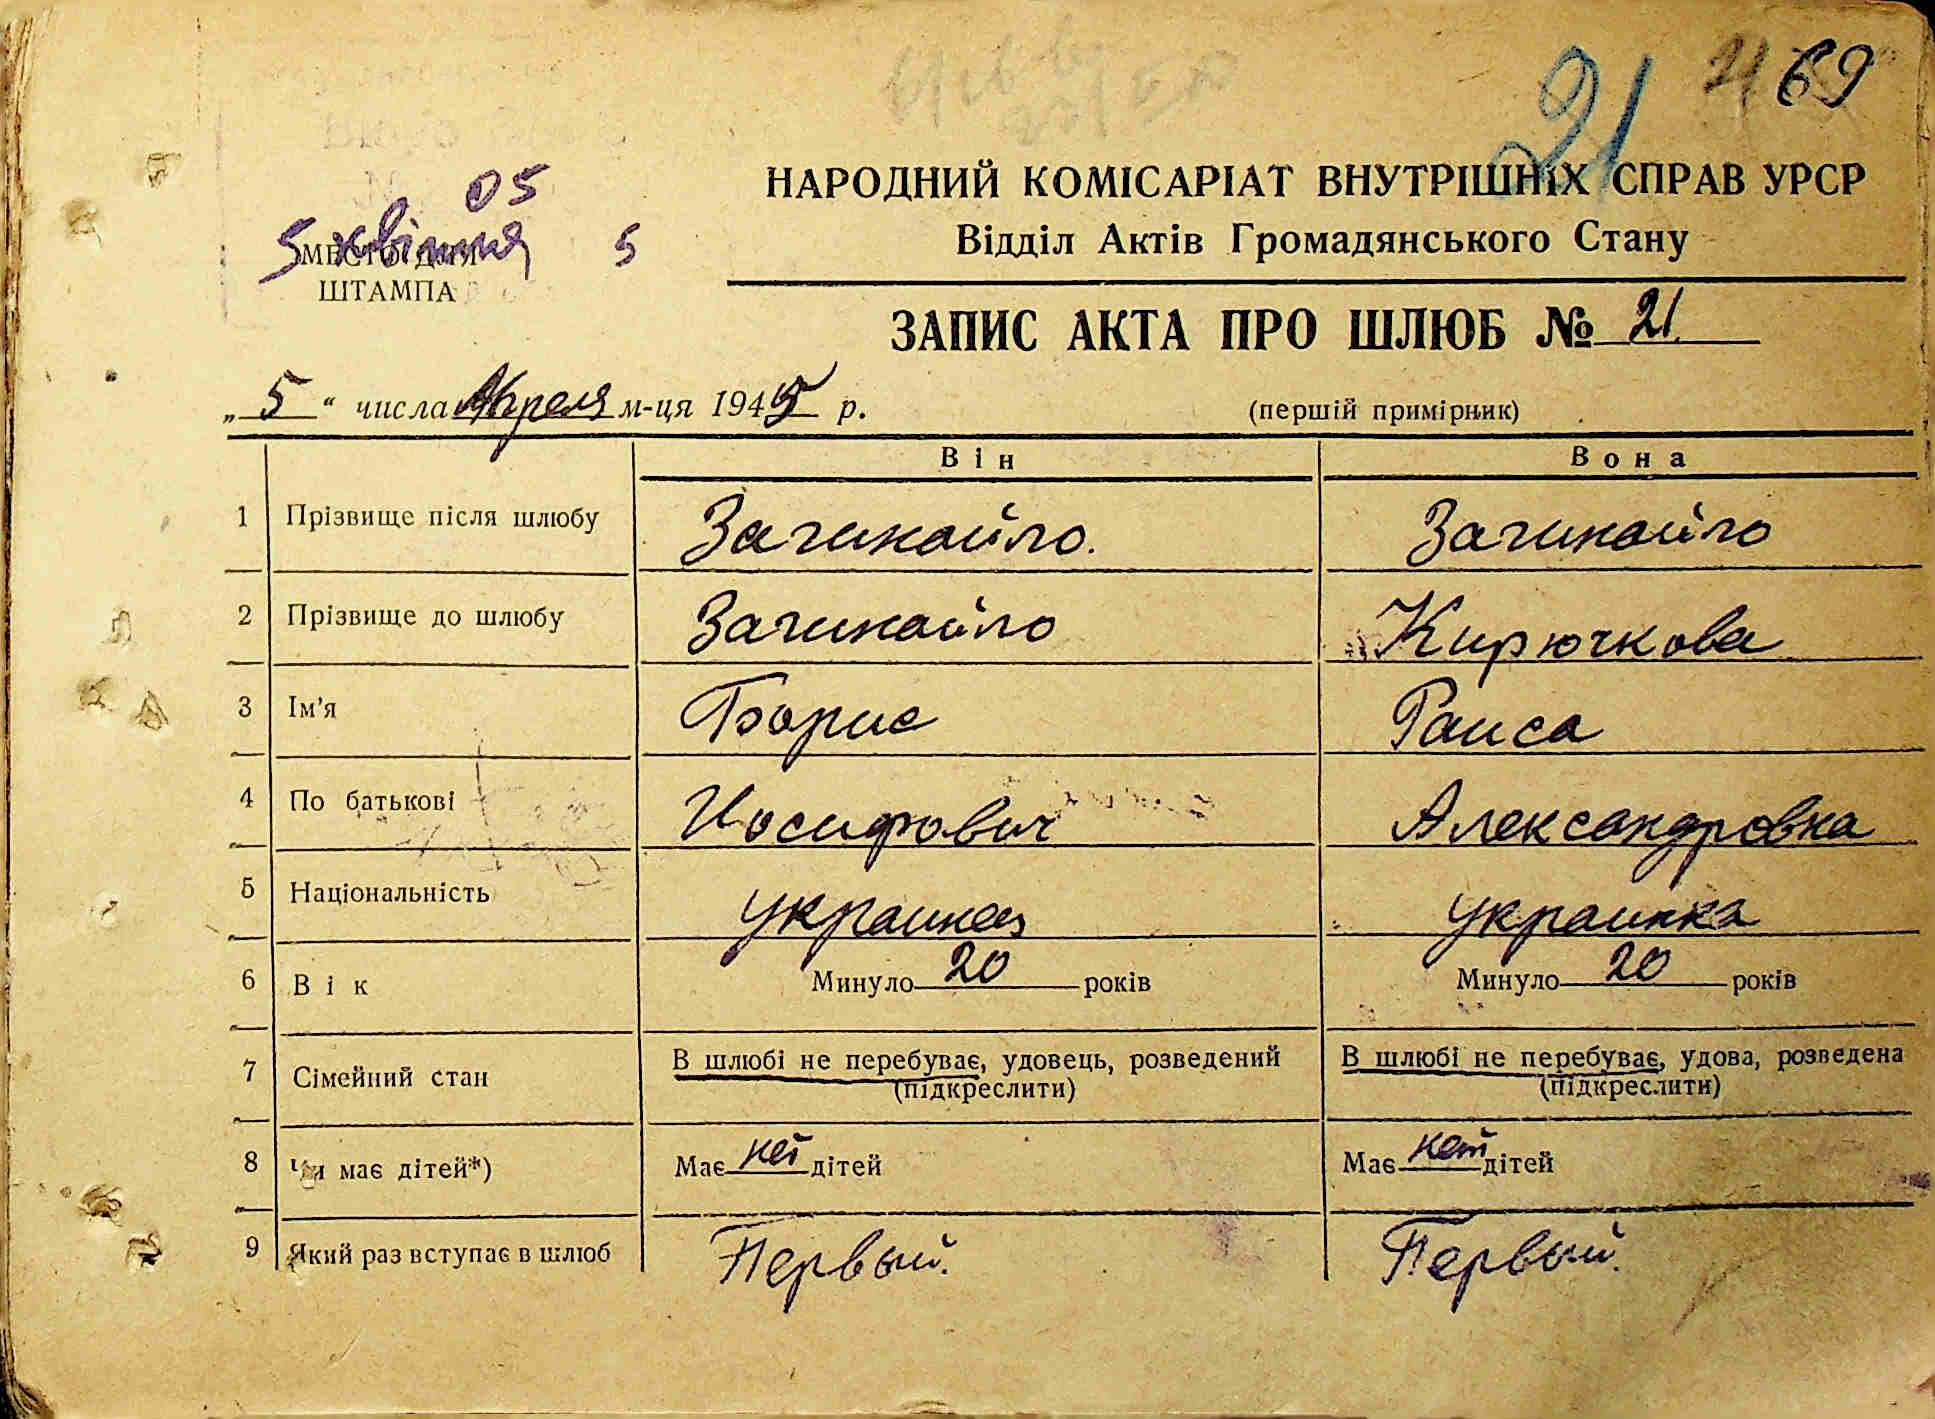 21 69
НАРОДНИЙ КОМІСАРІАТ ВНУТРІШНІХ СПРАВ УРСР
Відділ Актів Громадянського Стану
05
5 квітня 5
МЕСТО ДЛЯ
ШТАМПА
ЗАПИС АКТА ПРО ШЛЮБ № 21.
„ 5 “ числа Апреля м-ця 1945 р.
(перший примірник)
Він Вона
1 Прізвище після шлюбу Зачинайло. Зачинайло
2 Прізвище до шлюбу Зачинайло Кирючкова
3 Ім'я Борис Раиса
4 По батькові Иосифович Александровна
5 Національність украинец украинка
6 Вік Минуло 20 років Минуло 20 років
7 Сімейний стан В шлюбі не перебуває, удовець, розведений В шлюбі не перебуває, удова, розведена
(підкреслити) (підкреслити)
8 Чи має дітей*) Має нет дітей Має нет дітей
9 Який раз вступає в шлюб Первый. Первый.